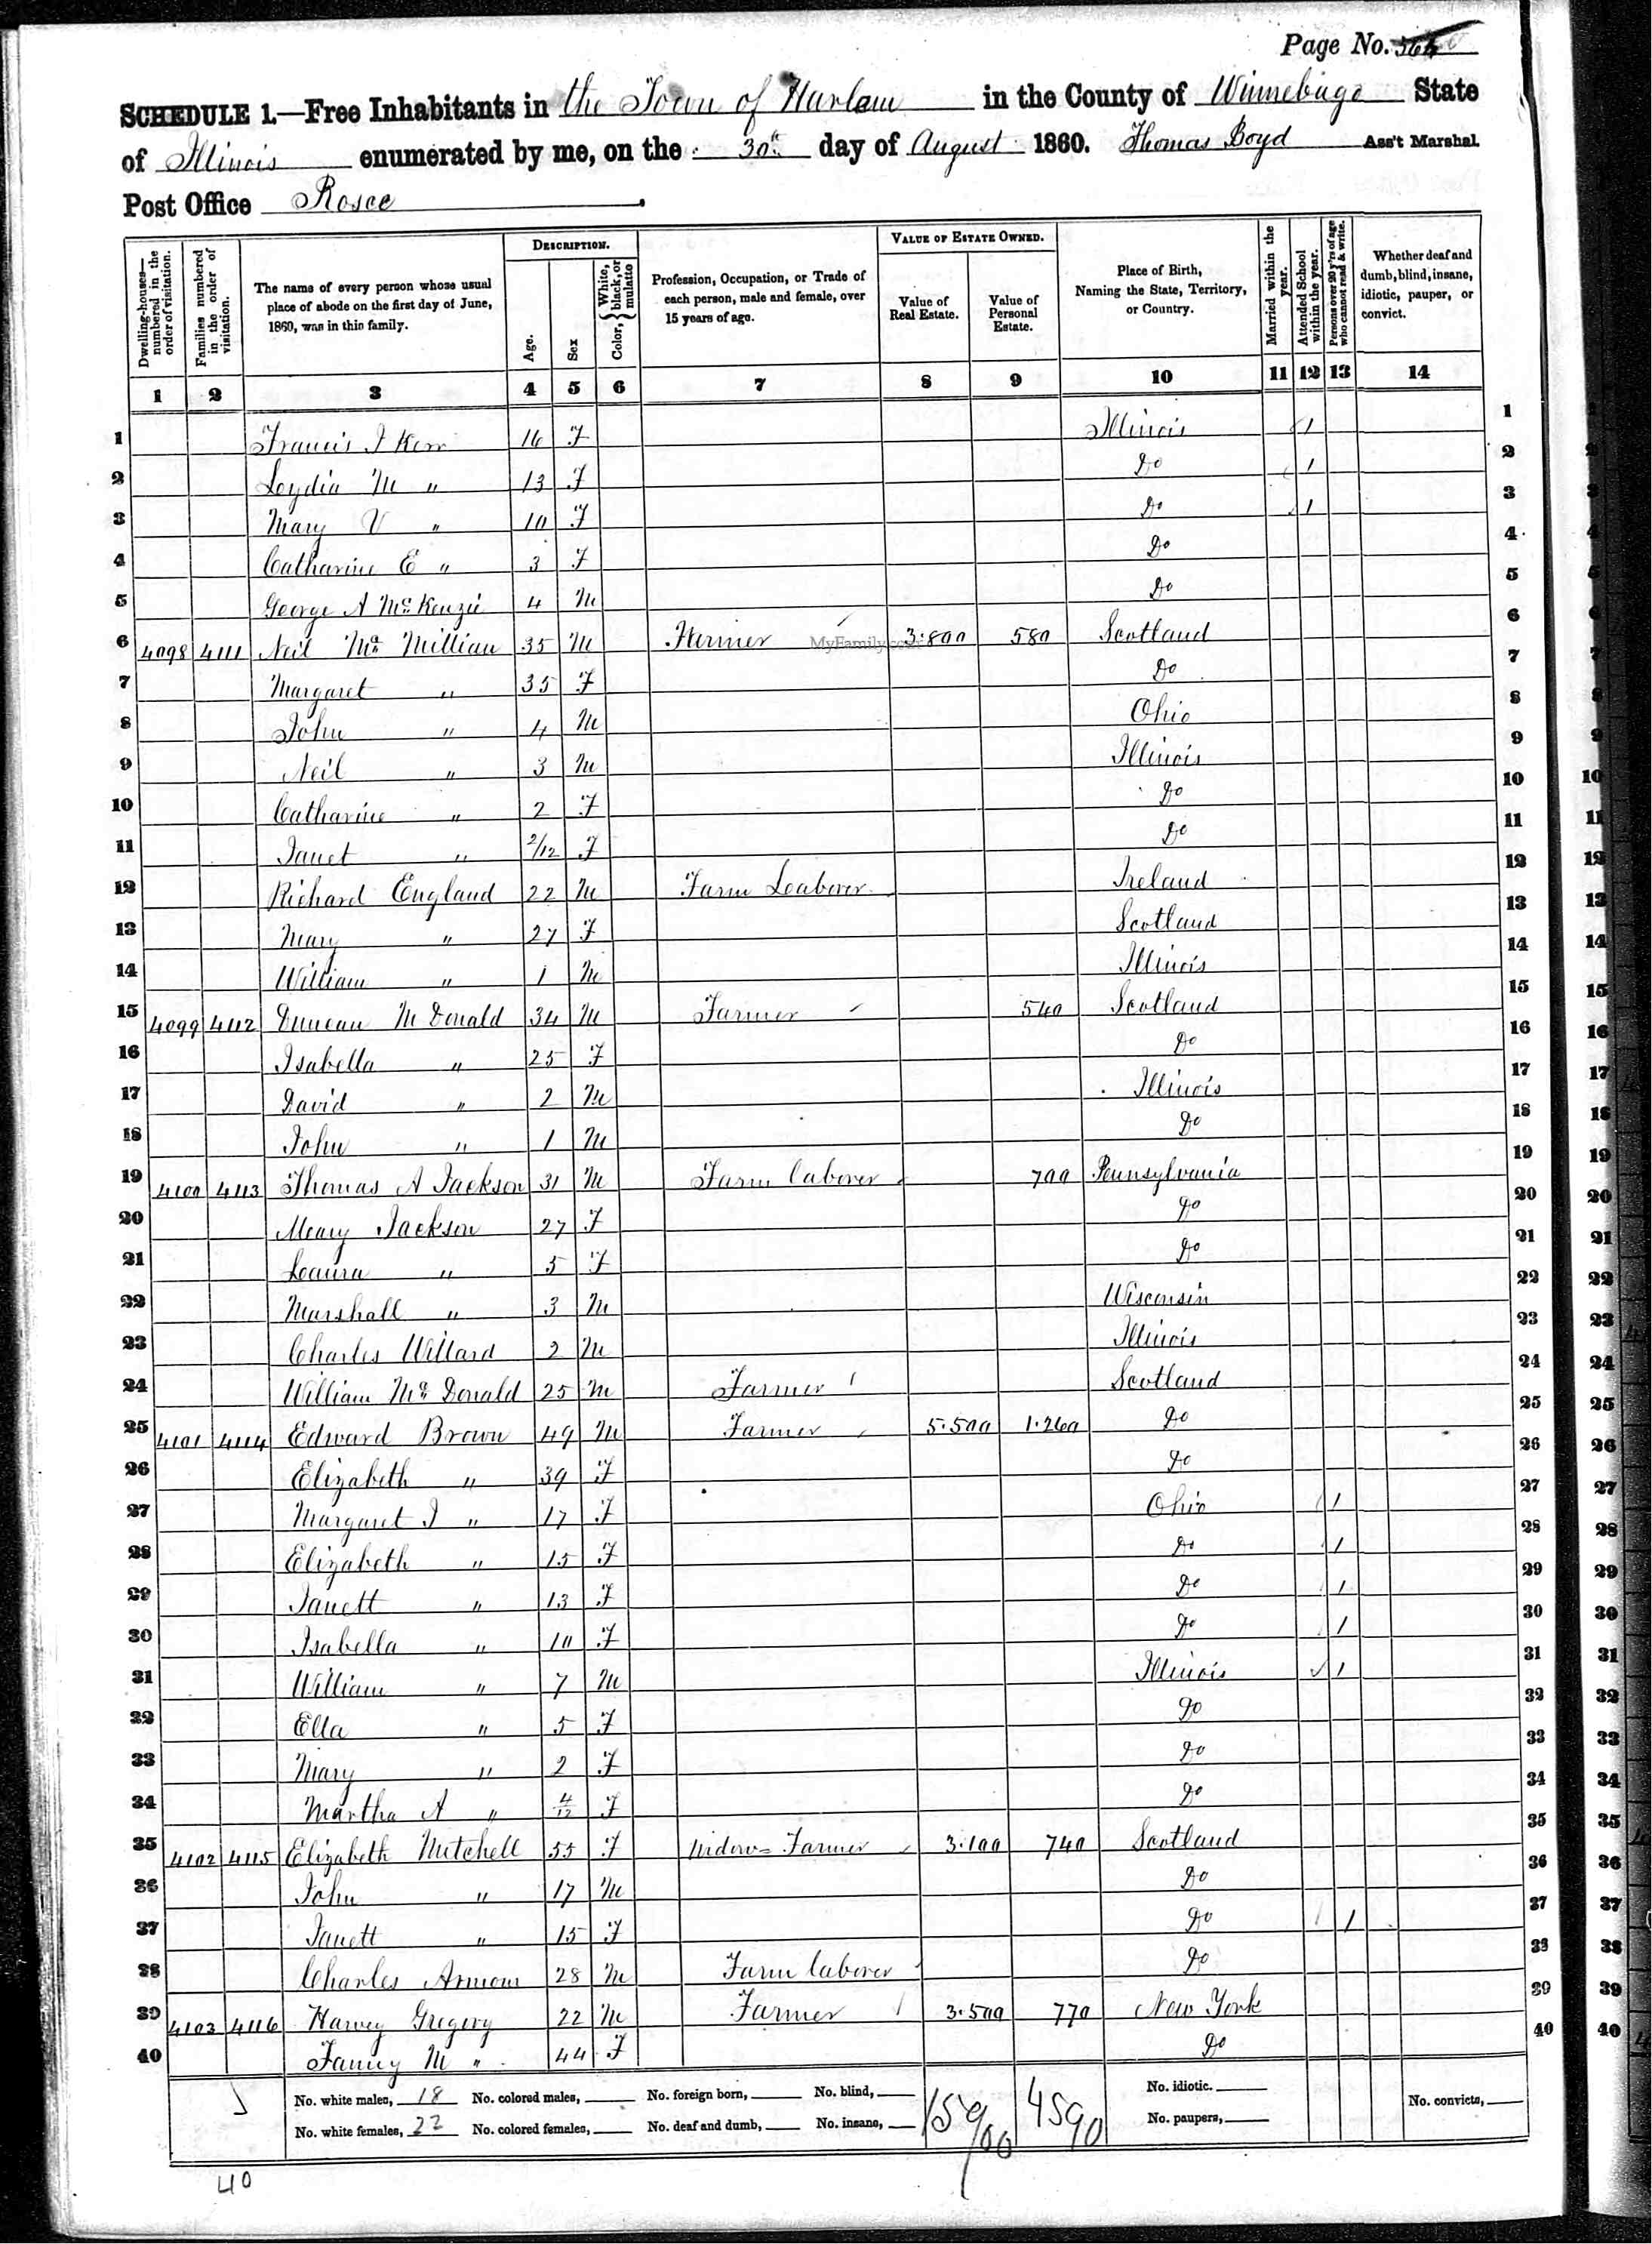 Page No. 564
SCHEDULE 1.—Free Inhabitants in the Town of Harlem in the County of Winnebago State
of Illinois enumerated by me, on the 30th day of August 1860. Thomas Boyd Ass't Marshal.
Post Office Roscoe
Dwelling-houses—numbered in the order of visitation. Families numbered in the order of visitation. The name of every person whose usual place of abode on the first day of June, 1860, was in this family. DESCRIPTION. Age. Sex Color, {White, black, or mulatto Profession, Occupation, or Trade of each person, male and female, over 15 years of age. VALUE OF ESTATE OWNED. Value of Real Estate. Value of Personal Estate. Place of Birth, Naming the State, Territory, or Country. Married within the year. Attended School within the year. Persons over 20 y'rs of age who cannot read & write. Whether deaf and dumb, blind, insane, idiotic, pauper, or convict.
1 2 3 4 5 6 7 8 9 10 11 12 13 14
1 Francis J Kerr 16 F Illinois 1 1
2 Lydia M " 13 F Do 1 2
3 Mary V " 10 F Do 1 3
4 Catharine E " 3 F Do 4
5 George A McKenzie 4 M Do 5
6 4098 4111 Neil Mc Millian 35 M Farmer 3.800 580 Scotland 6
MyFamily.com
7 Margaret " 35 F Do 7
8 John " 4 M Ohio 8
9 Neil " 3 M Illinois 9
10 Catharine " 2 F Do 10
11 Janet " 2/12 F Do 11
12 Richard England 22 M Farm Laborer Ireland 12
13 Mary " 27 F Scotland 13
14 William " 1 M Illinois 14
15 4099 4112 Duncan McDonald 34 M Farmer 540 Scotland 15
16 Isabella " 25 F Do 16
17 David " 2 M Illinois 17
18 John " 1 M Do 18
19 4100 4113 Thomas A Jackson 31 M Farm laborer 700 Pennsylvania 19
20 Meary Jackson 27 F Do 20
21 Laura " 5 F Do 21
22 Marshall " 3 M Wisconsin 22
23 Charles Willard 2 M Illinois 23
24 William Mc Donald 25 M Farmer Scotland 24
25 4101 4114 Edward Brown 49 M Farmer 5.500 1.260 Do 25
26 Elizabeth " 39 F Do 26
27 Margaret J " 17 F Ohio 1 27
28 Elizabeth " 15 F Do 1 28
29 Janett " 13 F Do 1 29
30 Isabella " 10 F Do 1 30
31 William " 7 M Illinois 1 31
32 Ella " 5 F Do 32
33 Mary " 2 F Do 33
34 Martha A " 4/12 F Do 34
35 4102 4115 Elizabeth Mitchell 55 F Widow = Farmer 3.100 740 Scotland 35
36 John " 17 M Do 36
37 Janett " 15 F Do 1 37
38 Charles Armour 28 M Farm laborer Do 38
39 4103 4116 Harvey Gregory 22 M Farmer 3.500 770 New York 39
40 Fanny M " 44 F Do 40
No. white males, 18 No. colored males, No. foreign born, No. blind, 15900 4590 No. idiotic. No. convicts,
No. white females, 22 No. colored females, No. deaf and dumb, No. insane, No. paupers,
40